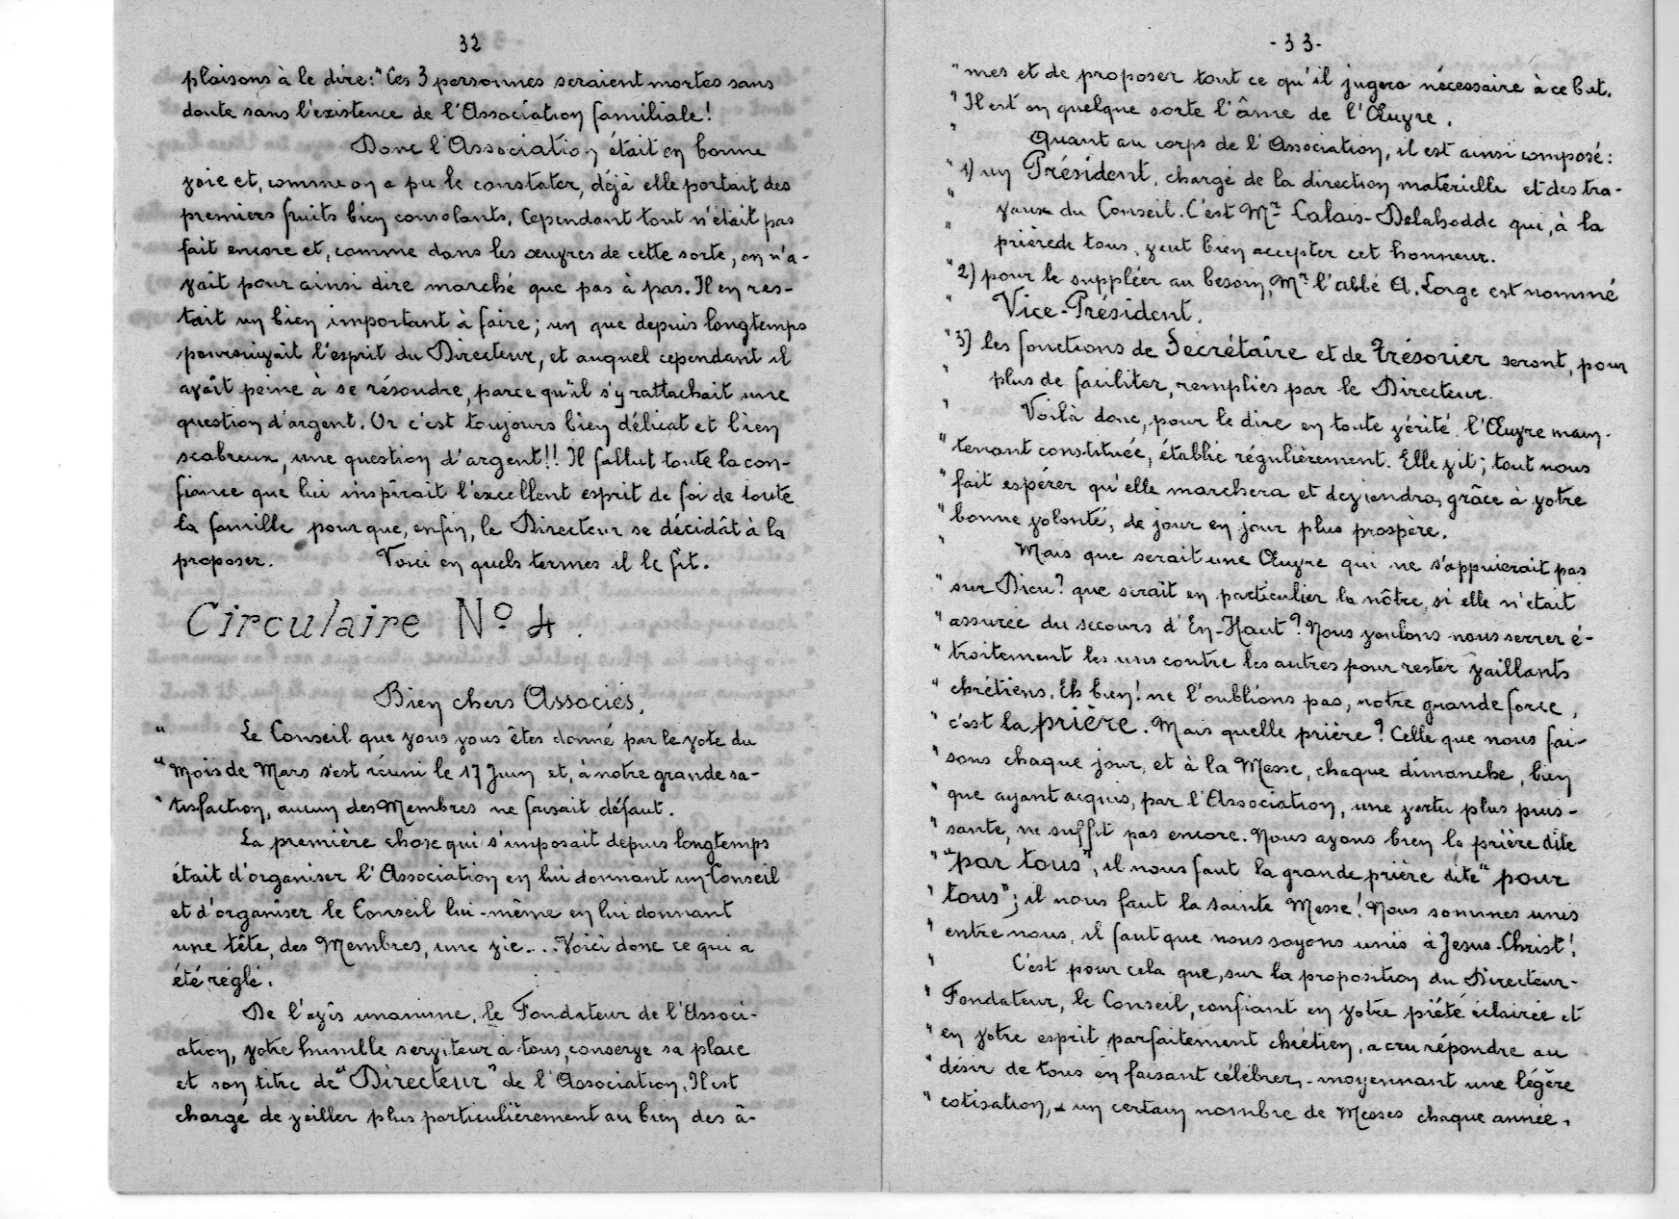 32
plaisons à le dire: "Ces 3 personnes seraient mortes sans
doute sans l'existence de l'Association familiale!
Donc l'Association était en bonne
voie et, comme on a pu le constater, déjà elle portait des
premiers fruits bien consolants. Cependant tout n'était pas
fait encore et, comme dans les œuvres de cette sorte, on n'a-
vait pour ainsi dire marché que pas à pas. Il en res-
tait un bien important à faire; un que depuis longtemps
poursuivait l'esprit du Directeur, et auquel cependant il
avait peine à se résoudre, parce qu'il s'y rattachait une
question d'argent. Or c'est toujours bien délicat et bien
scabreux, une question d'argent!! Il fallut toute la con-
fiance que lui inspirait l'excellent esprit de foi de toute
la famille pour que, enfin, le Directeur se décidât à la
proposer. Voici en quels termes il le fit.
Circulaire Nº 4.
Bien chers Associés,
" Le Conseil que vous vous êtes donné par le vote du
" Mois de Mars s'est réuni le 17 Juin et, à notre grande sa-
" tisfaction, aucun des Membres ne faisait défaut.
La première chose qui s'imposait depuis longtemps
était d'organiser l'Association en lui donnant un Conseil
et d'organiser le Conseil lui-même en lui donnant
une tête, des Membres, une vie... Voici donc ce qui a
été réglé.
De l'avis unanime, le Fondateur de l'Associ-
ation, votre humble serviteur à tous, conserve sa place
et son titre de "Directeur" de l'Association. Il est
chargé de veiller plus particulièrement au bien des â-
- 33 -
" mes et de proposer tout ce qu'il jugera nécessaire à ce but.
" Il est en quelque sorte l'âme de l'Œuvre.
" Quant au corps de l'Association, il est ainsi composé:
" 1) un Président, chargé de la direction matérielle et des tra-
" vaux du Conseil. C'est Mr Calais-Delahodde qui, à la
" prière de tous, veut bien accepter cet honneur.
" 2) pour le suppléer au besoin, Mr l'abbé A. Lorge est nommé
" Vice-Président.
" 3) les fonctions de Secrétaire et de Trésorier seront, pour
" plus de faciliter, remplies par le Directeur.
" Voilà donc, pour le dire en toute vérité l'Œuvre main-
" tenant constituée, établie régulièrement. Elle vit; tout nous
" fait espérer qu'elle marchera et deviendra, grâce à votre
" bonne volonté, de jour en jour plus prospère.
" Mais que serait une Œuvre qui ne s'appuierait pas
" sur Dieu? que serait en particulier la nôtre, si elle n'était
" assurée du secours d'En-Haut? Nous voulons nous serrer é-
" troitement les uns contre les autres pour rester vaillants
" chrétiens. Eh bien! ne l'oublions pas, notre grande force,
" c'est la prière. Mais quelle prière? Celle que nous fai-
" sons chaque jour, et à la Messe, chaque dimanche, bien
" que ayant acquis, par l'Association, une vertu plus puis-
" sante, ne suffit pas encore. Nous avons bien la prière dite
" "par tous", il nous faut la grande prière dite "pour
" tous"; il nous faut la sainte Messe! Nous sommes unis
" entre nous, il faut que nous soyons unis à Jesus-Christ!
" C'est pour cela que, sur la proposition du Directeur-
" Fondateur, le Conseil, confiant en votre piété éclairée et
" en votre esprit parfaitement chrétien, a cru répondre au
" désir de tous en faisant célébrer, - moyennant une légère
" cotisation, - un certain nombre de Messes chaque année.